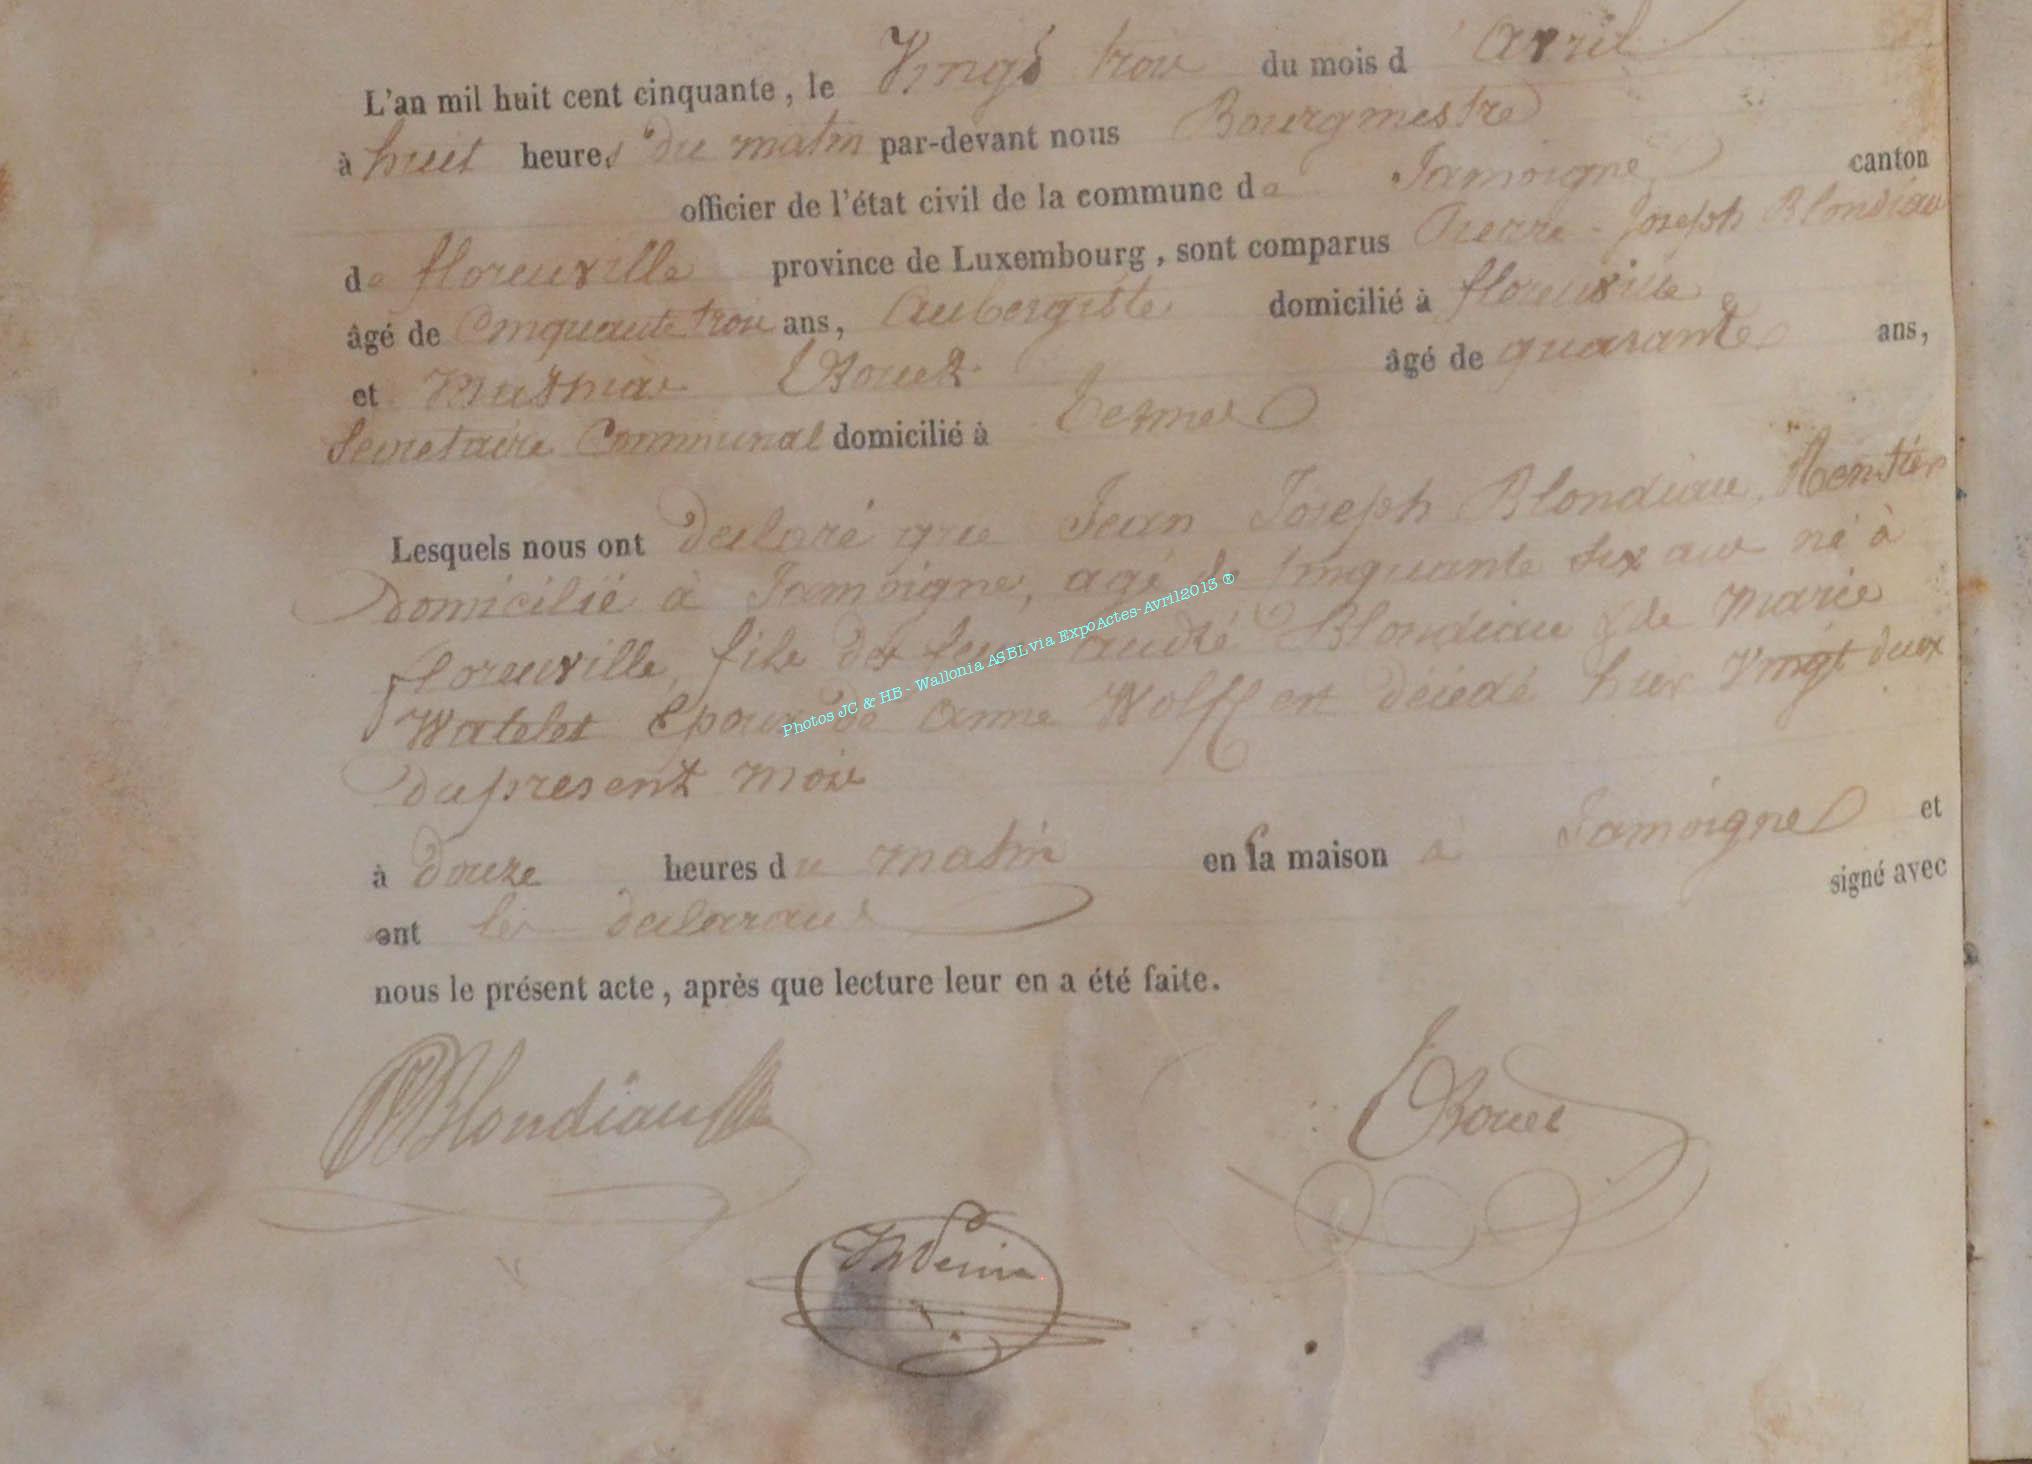 L'an mil huit cent cinquante, le Vingt trois du mois d'avril
à huit heures du matin par-devant nous Bourgmestre
officier de l'état civil de la commune de Jamoigne canton
de florenville province de Luxembourg, sont comparus Pierre-Joseph Blondiau
âgé de Cinquante trois ans, Aubergiste domicilié à florenville
et âgé de quarante ans,
Secretaire Communal domicilié à Termes
Lesquels nous ont declaré que Jean Joseph Blondiau, Rentier
domicilié à Jamoigne, agé de Cinquante Six ans né à
florenville, fils de feu andré Blondiau & de Marie
Watelet Epoux de anne Wolff est décédé hier Vingt deux
du present mois
à douze heures du matin en sa maison à Jamoigne et
ont les declarans signé avec
nous le présent acte, après que lecture leur en a été faite.
Blondiau
Photos JC & HB - Wallonia ASBL via ExpoActes-Avril2013 ®